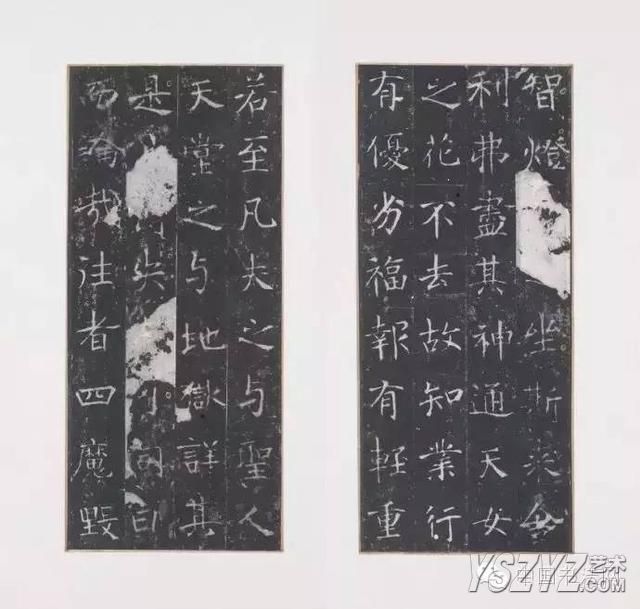 智燈坐斯来舍
利弗盡其神通天女
之花不去故知業行
有優劣福報有輕重
若至凡夫之与聖人
天堂之与地獄詳其
是失可同日
而論哉往者四魔毀
YSZYZ艺术